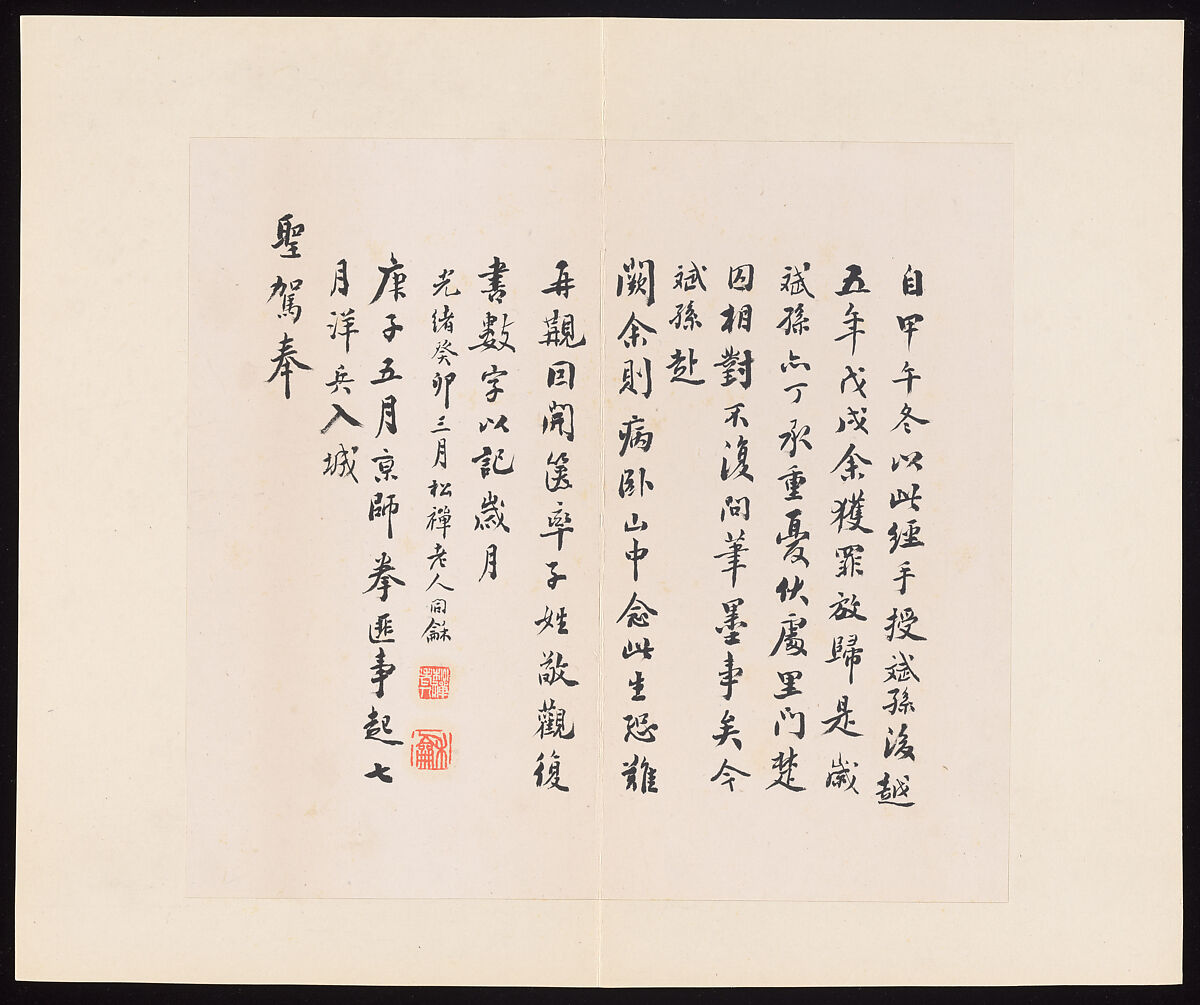 自甲午冬以此經手授斌孫後越
五年戊戌余獲罪放歸是歲
斌孫亦丁承重憂伏處里門楚
囚相對不復問筆墨事矣今
斌孫赴
闕余則病臥山中念此生恐難
再觀因開篋率子姓敬觀復
書數字以記歲月
光緒癸卯三月松禪老人同龢
庚子五月京師拳匪事起七
月洋兵入城
聖駕奉